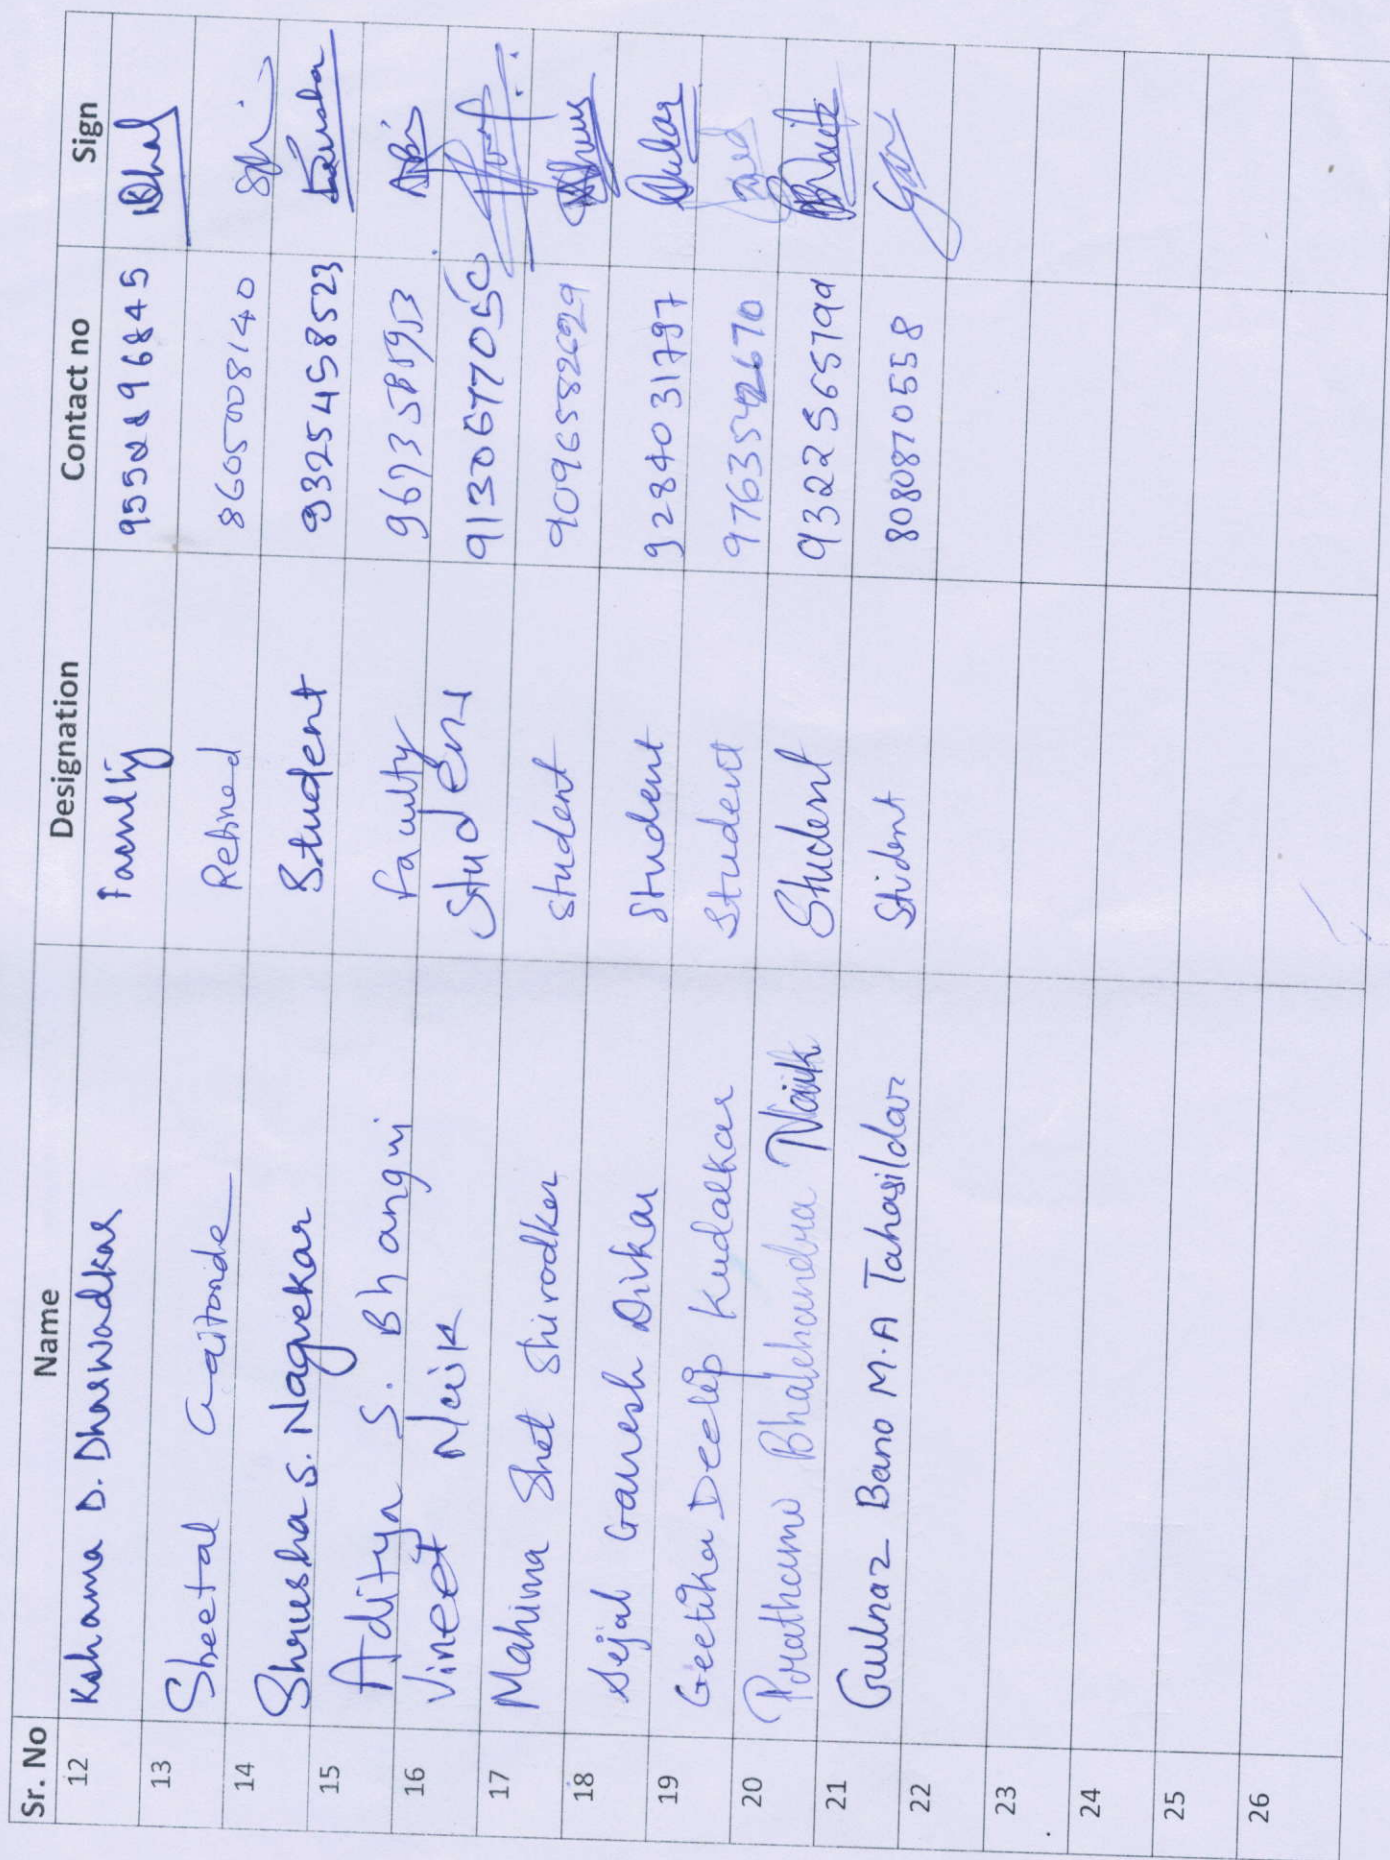 Sr. No Name Designation Contact no Sign
12 Kshama D. Dharwadkar Faculty 9552896845
13 Sheetal Gaitonde Retired 8605008140
14 Shrusha S. Nagvekar Student 9325458523
15 Aditya S. Bhangui Faculty
16 Vineet Naik Student 9130677050
17 Mahima Shet Shirodkar Student 9096582629
18 Sejal Ganesh Divkar Student 9284031797
19 Geetika Deelip Kudalkar Student
20 Prathama Bhalchandra Naik Student 9322565799
21 Gulnaz Bano M.A Tahasildar Student 8080870558
22
23
24
25
26